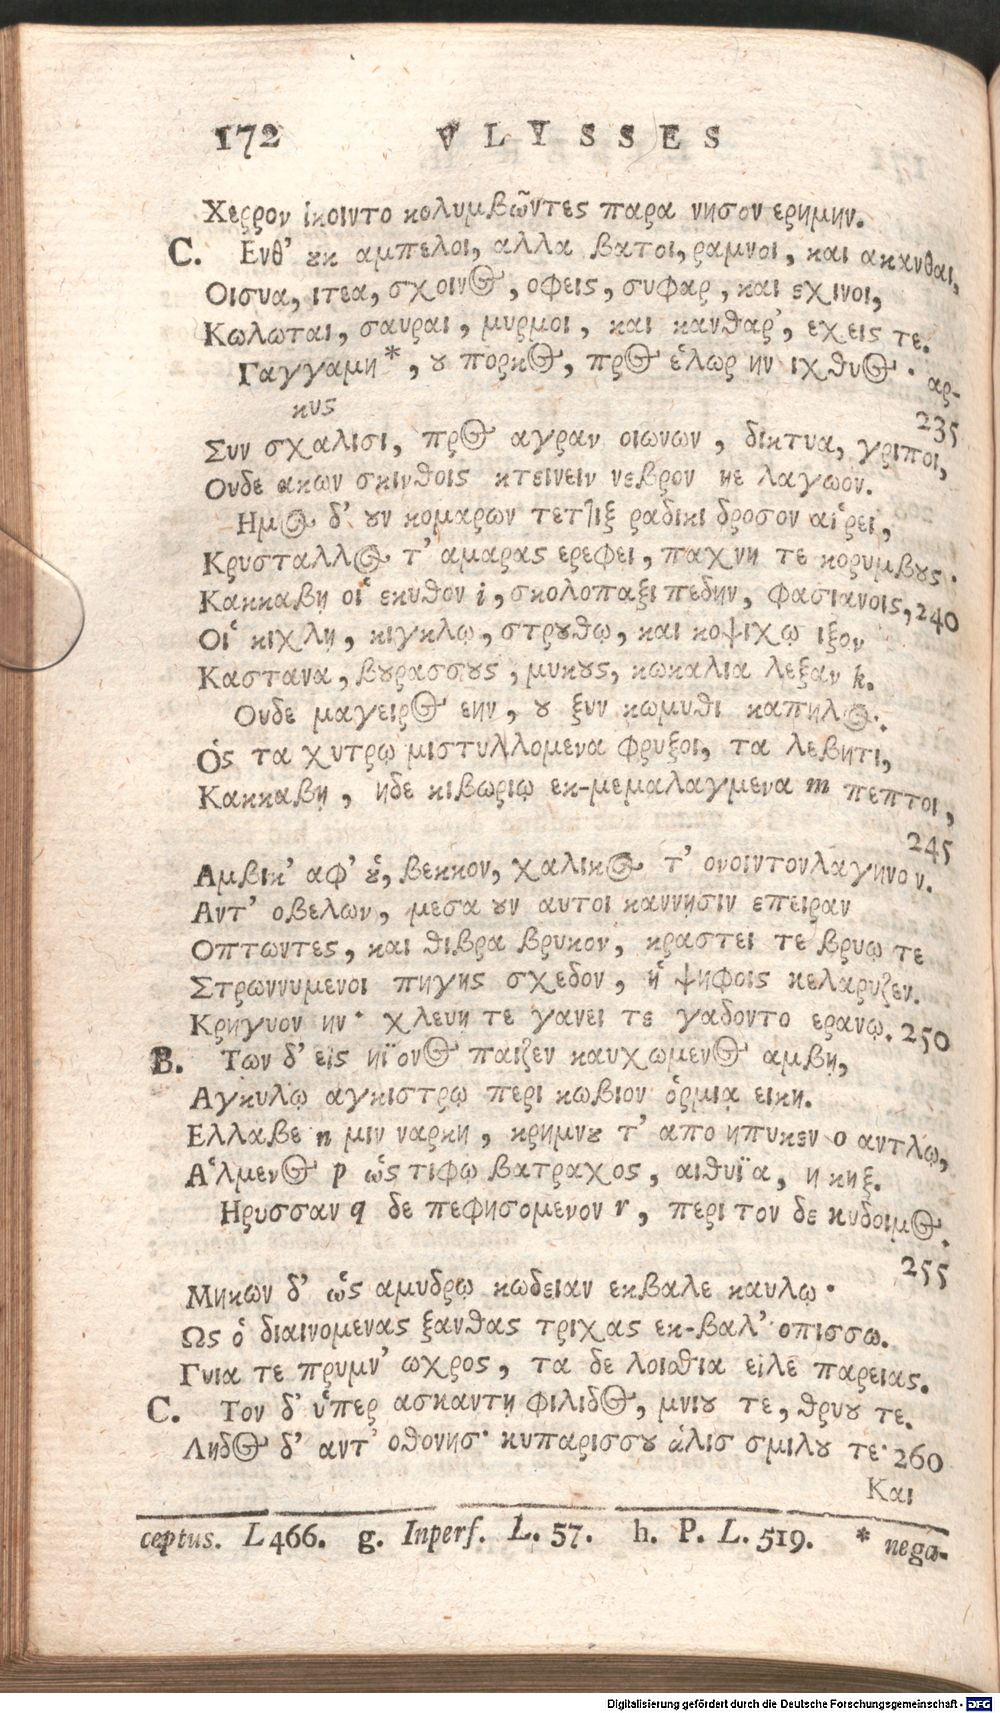 172 VLYSSES
Χερρον ἱκοιντο κολυμβῶντες παρα νησον ερημην.
C. Ενθ' ȣκ αμπελοι, αλλα βατοι, ραμνοι, και ακανθαι,
Οισυα, ιτεα, σχοινος, οφεις, συφαρ, και εχινοι,
Κωλωται, σαυραι, μυρμοι, και κανθαρ', εχεις τε.
Γαγγαμη*, ȣ πορκος, προς ἑλωρ ην ιχθυος· αρ-
κυς 235
Συν σχαλισι, προς αγραν οιωνων, δικτυα, γριποι,
Ουδε ακων σκινθοις κτεινειν νεβρον ηε λαγωον.
Ημος δ' ȣν κομαρων τετἸιξ ραδικι δροσον αἱρει,
Κρυσταλλος τ' αμαρας ερεφει, παχνη τε κορυμβȣς·
Κακκαβη οἱ εκυθον i, σκολοπαξι πεδην, φασιανοις, 240
Οἱ κιχλη, κιγκλω, στρȣθῳ, και κοψιχῳ ιξον
Καστανα, βȣρασσȣς, μυκȣς, κωκαλια λεξαν k.
Ουδε μαγειρος εην, ȣ ξυν κωμυθι καπηλος.
Ὁς τα χυτρῳ μιστυλλομενα φρυξοι, τα λεβητι,
Κακκαβῃ, ηδε κιβωριῳ εκ-μεμαλαγμενα m πεπτοι,
245
Αμβικ' αφ' ȣ̔, βεκκον, χαλικος τ' ονοιντονλαγηνον.
Αντ' οβελων, μεσα ȣν αυτοι καννησιν επειραν
Οπτωντες, και θιβρα βρυκον, κραστει τε βρυῳ τε
Στρωννυμενοι πηγης σχεδον, ἡ ψηφοις κελαρυζεν.
Κρηγυον ην· χλευη τε γανει τε γαδοντο ερανῳ. 250
B. Των δ' εις ηϊονος παιζεν καυχωμενος αμβῃ,
Αγκυλῳ αγκιστρῳ περι κωβιον ὁρμιᾳ εικη.
Ελλαβε n μιν ναρκη, κρημνȣ τ' απο ηπυκεν o αντλῳ,
Ἁλμενος p ὡς τιφῳ βατραχος, αιθυϊα, η κηξ.
Ηρυσσαν q δε πεφησομενον r, περι τον δε κυδοιμος.
255
Μηκων δ' ὡς αμυδρῳ κωδειαν εκβαλε καυλῳ·
Ως ὁ διαινομενας ξανθας τριχας εκ-βαλ' οπισσω.
Γυια τε πρυμν' ωχρος, τα δε λοισθια ειλε παρειας.
C. Τον δ' ὑπερ ασκαντῃ φιλιδος, μνιȣ τε, θρυȣ τε.
Ληδος δ' αντ' οθονης· κυπαρισσȣ ἁλις σμιλȣ τε· 260
Και
ceptus. L 466. g. Inperf. L. 57. h. P. L. 519. * nega-
Digitalisierung gefördert durch die Deutsche Forschungsgemeinschaft - DFG